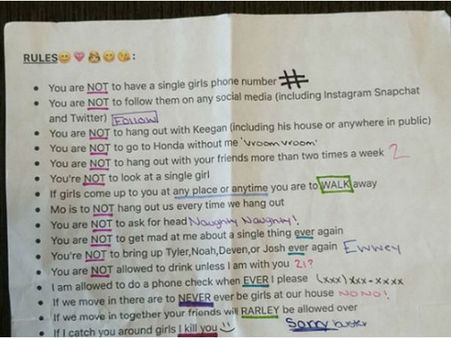 RULES😊💗👸😊😘:
You are NOT to have a single girls phone number #
You are NOT to follow them on any social media (including Instagram Snapchat
and Twitter) Follow
You are NOT to hang out with Keegan (including his house or anywhere in public)
You are NOT to go to Honda without me 'vroom vroom'
You are NOT to hang out with your friends more than two times a week 2
You're NOT to look at a single girl
If girls come up to you at any place or anytime you are to WALK away
Mo is to NOT hang out us every time we hang out
You are NOT to ask for head Naughty Naughty!
You are NOT to get mad at me about a single thing ever again
You're NOT to bring up Tyler,Noah,Deven,or Josh ever again Ewwey
You are NOT allowed to drink unless I am with you 21?
I am allowed to do a phone check when EVER I please (xxx)xxx-xxxx
If we move in there are to NEVER ever be girls at our house NO NO!
If we move in together your friends will RARLEY be allowed over
If I catch you around girls I kill you :) Sorry